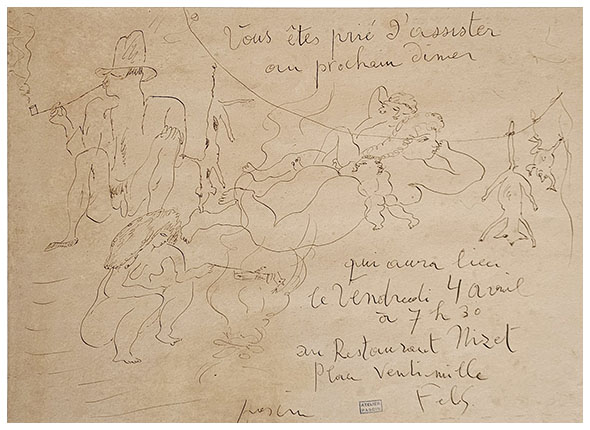 Vous êtes prié d'assister
au prochain dîner
qui aura lieu
le Vendredi 4 avril
à 7 h 30
au Restaurant Nizet
Place Ventimille
Fels
pascin
ATELIER
PASCIN